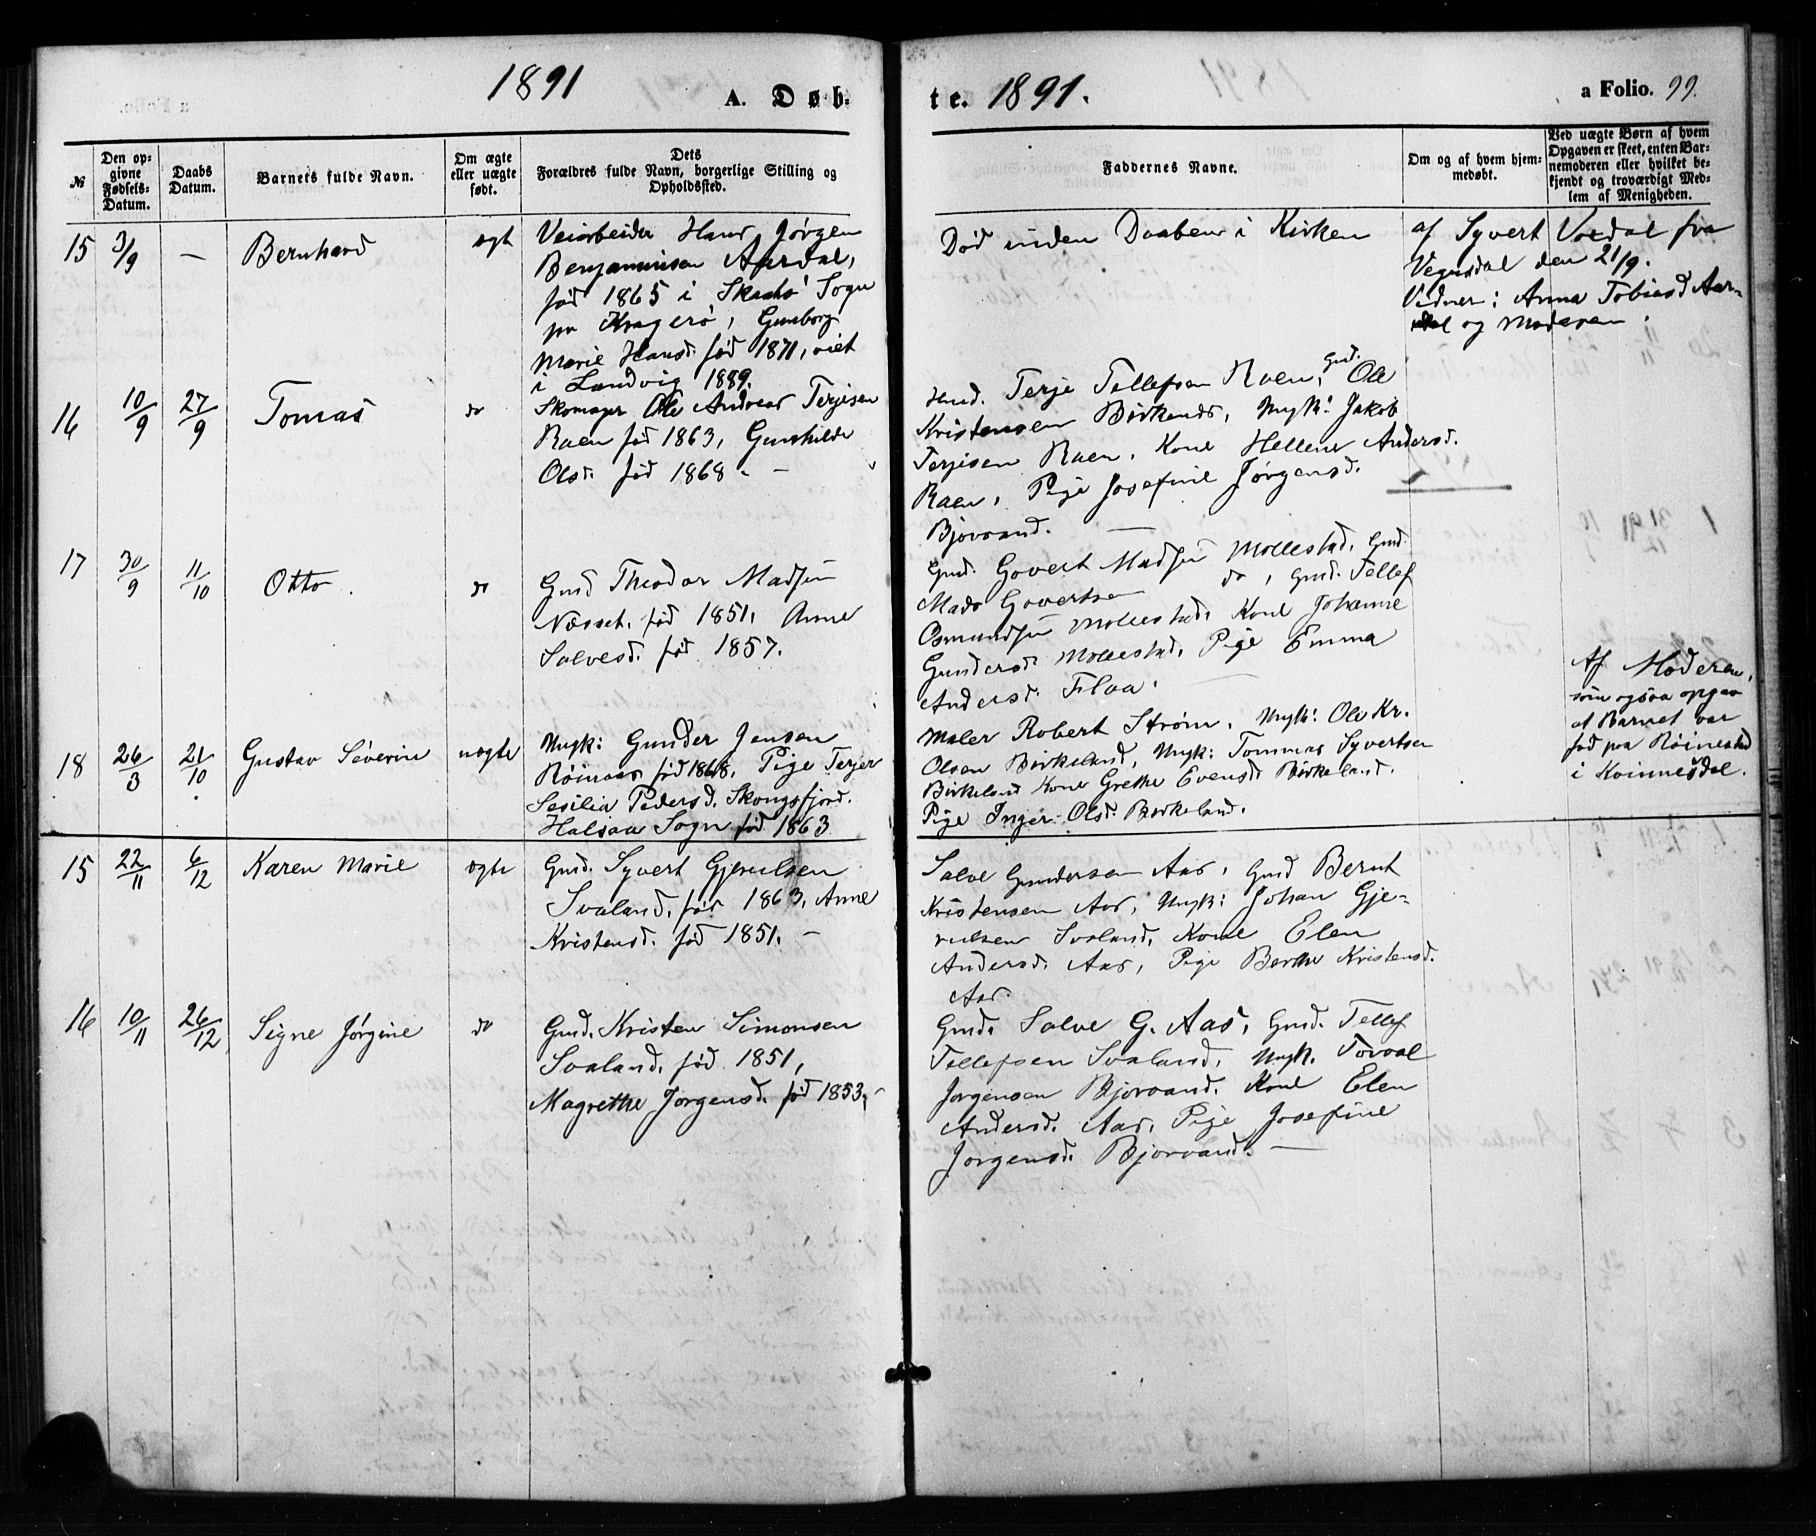 1891
A. Døb-
te. 1891.
a Folio. 99.
№
Den op-
givne
Fødsels-
Datum.
Daabs
Datum.
Barnets fulde Navn.
Om ægte
eller uægte
født.
Dets
Forældres fulde Navn, borgerlige Stilling og
Opholdssted.
Faddernes Navne.
Om og af hvem hjem-
medøbt.
Ved uægte Børn af hvem
Opgaven er skeet, enten Bar-
nemoderen eller hvilket be-
kjendt og troværdigt Med-
lem af Menigheden.
15 3/9 — Bernhard ægte
Veiarbeider Hans Jørgen
Benjaminsen Aardal,
fød 1865 i Skaatø Sogn
pr Kragerø, Gunborg
Marie Hansd. fød 1871, viet
i Landvig 1889.
Død inden Daaben i Kirken
af Syvert Vordal fra
Vegusdal den 21/9.
Vidner: Anna Tobiasd Aar-
dal og Moderen.
16 10/9 27/9 Tomas do
Skomager Ole Andreas Terjesen
Raen fød 1863, Gunhilde
Olsd. fød 1868. —
Gmd. Terje Tellefsen Raen, Gmd. Ole
Kristensen Birkenes, Ungk: Jakob
Terjesen Raen, Kone Hellene Andersd.
Raen, Pige Josefine Jørgensd.
Bjorvand. —
17 30/9 11/10 Otto. do
Gmd Theodor Madsen
Næsset. fød 1851. Anne
Salvesd. fød 1857.
Gmd. Govert Madsen Mollestad. Gmd.
Mads Govertsen do, Gmd. Tellef
Osmundsen Mollestad, Kone Johanne
Gundersd. Mollestad, Pige Emma
Andersd. Flaa. —
18 26/3 21/10 Gustav Severin uægte
Ungk: Gunder Jensen
Røinaas fød 1868, Pige Terjer
Sesilia Pedersd. Skongsfjord.
Halsaa Sogn fød 1863
Maler Robert Strøm, Ungk: Ole Kr.
Olsen Birkeland, Ungk: Tommas Syvertsen
Birkeland Kone Grethe Evensd Birkeland.
Pige Inger Olsd. Birkeland.
Af Moderen,
som ogsaa opgav
at Barnet var
fød paa Røinestad
i Kvinnesdal.
15 22/11 6/12 Karen Marie ægte
Gmd. Syvert Gjerulsen
Svaland, fød 1863, Anne
Kristensd. fød 1851. —
Salve Gundersen Aas, Gmd Bernt
Kristensen Aas, Ungk: Johan Gje-
rulsen Svaland, Kone Elen
Andersd. Aas, Pige Berthe Kristensd.
Aas.
16 10/11 26/12 Signe Jørgine do
Gmd. Kristen Simonsen
Svaland. fød 1851,
Magrethe Jørgensd. fød 1853. —
Gmd. Salve G. Aas, Gmd. Tellef
Tellefsen Svaland, Ungk. Torval
Jørgensen Bjorvand. Kone Elen
Andersd. Aas, Pige Josefine
Jørgensd. Bjorvand. —